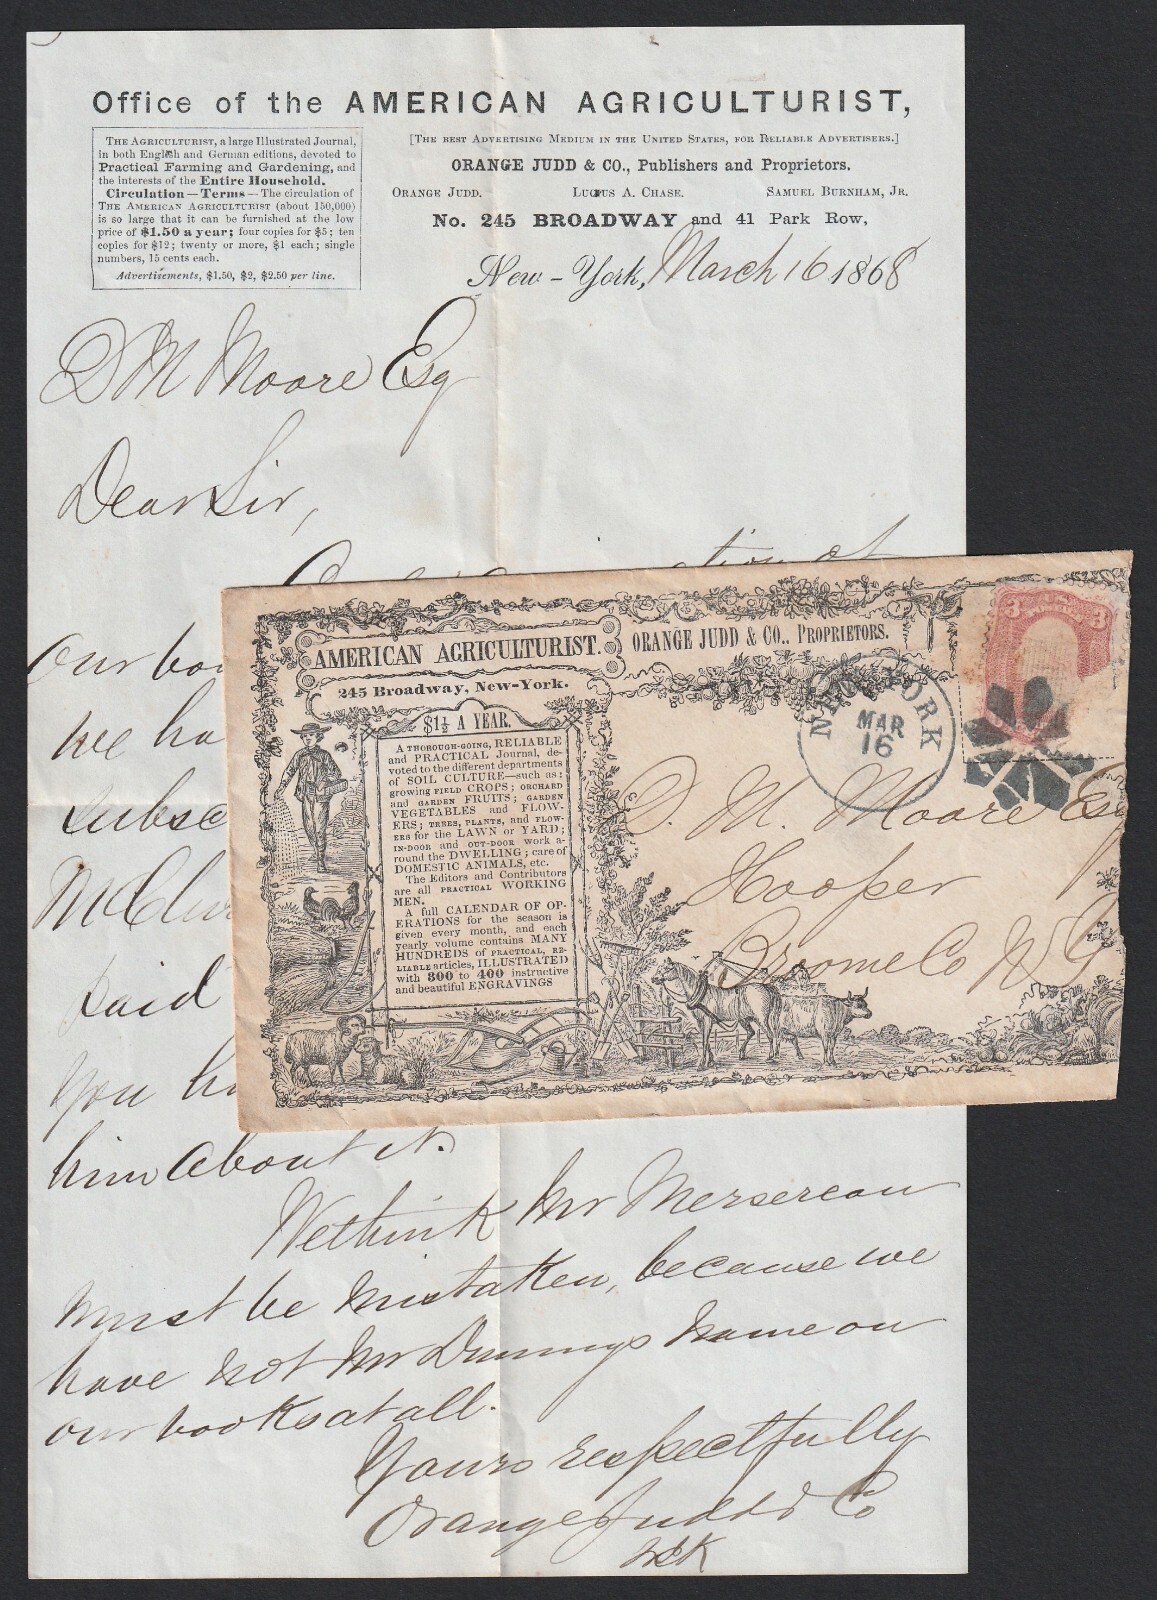 Office of the AMERICAN AGRICULTURIST,
THE AGRICULTURIST, a large Illustrated Journal,
in both English and German editions, devoted to
Practical Farming and Gardening, and
the interests of the Entire Household.
Circulation—Terms—The circulation of
THE AMERICAN AGRICULTURIST (about 150,000)
is so large that it can be furnished at the low
price of $1.50 a year; four copies for $5; ten
copies for $12; twenty or more, $1 each; single
numbers, 15 cents each.
Advertisements, $1.50, $2, $2.50 per line.
[THE BEST ADVERTISING MEDIUM IN THE UNITED STATES, FOR RELIABLE ADVERTISERS.]
ORANGE JUDD & CO., Publishers and Proprietors.
ORANGE JUDD. LUCIUS A. CHASE. SAMUEL BURNHAM, JR.
No. 245 BROADWAY and 41 Park Row,
New-York, March 16 1868
D M Moore Esq
Dear Sir,
of
our
we ha
subsc
McClu
said
you
him about it.
We think Mr Mersereau
must be mistaken, because we
have not Mr Dunnings name on
our books at all.
Yours respectfully
Orange Judd & Co
AMERICAN AGRICULTURIST.
245 Broadway, New-York.
$1½ A YEAR.
A THOROUGH-GOING, RELIABLE
and PRACTICAL Journal, de-
voted to the different departments
of SOIL CULTURE—such as:
growing FIELD CROPS; ORCHARD
and GARDEN FRUITS; GARDEN
VEGETABLES and FLOW-
ERS; TREES, PLANTS, and FLOW-
ERS for the LAWN or YARD;
IN-DOOR and OUT-DOOR work a-
round the DWELLING; care of
DOMESTIC ANIMALS, etc.
The Editors and Contributors
are all PRACTICAL WORKING
MEN.
A full CALENDAR OF OP-
ERATIONS for the season is
given every month, and each
yearly volume contains MANY
HUNDREDS of PRACTICAL, RE-
LIABLE articles, ILLUSTRATED
with 300 to 400 instructive
and beautiful ENGRAVINGS
ORANGE JUDD & CO., PROPRIETORS.
NEW YORK
MAR
16
3 3
D. M. Moore Esq
Hooper
Broome Co N Y